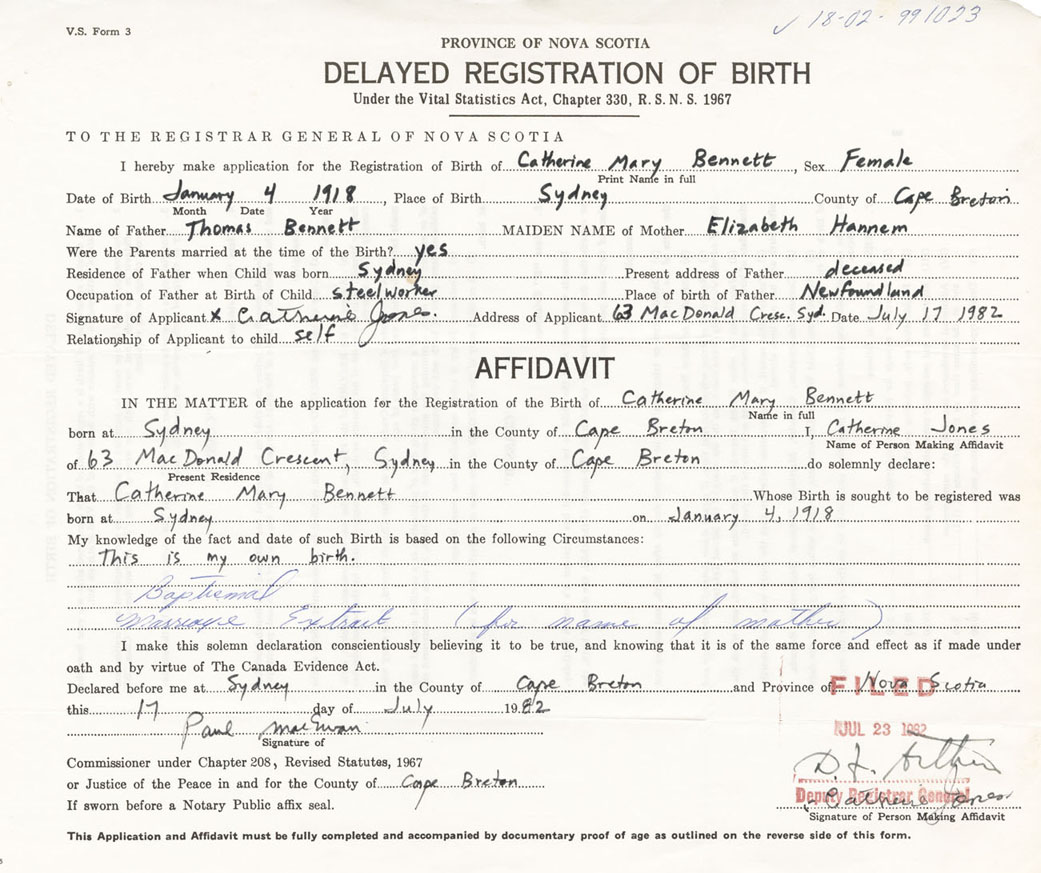 V.S. Form 3
✓ 18-02-991023
PROVINCE OF NOVA SCOTIA
DELAYED REGISTRATION OF BIRTH
Under the Vital Statistics Act, Chapter 330, R. S. N. S. 1967
TO THE REGISTRAR GENERAL OF NOVA SCOTIA
I hereby make application for the Registration of Birth of Catherine Mary Bennett, Sex Female
Print Name in full
Date of Birth January 4 1918, Place of Birth Sydney County of Cape Breton
Month Date Year
Name of Father Thomas Bennett MAIDEN NAME of Mother Elizabeth Hannem
Were the Parents married at the time of the Birth? yes
Residence of Father when Child was born Sydney Present address of Father deceased
Occupation of Father at Birth of Child steelworker Place of birth of Father Newfoundland
Signature of Applicant x Catherine Jones. Address of Applicant 63 MacDonald Cresc. Syd. Date July 17 1982
Relationship of Applicant to child self
AFFIDAVIT
IN THE MATTER of the application for the Registration of the Birth of Catherine Mary Bennett
Name in full
born at Sydney in the County of Cape Breton I, Catherine Jones
Name of Person Making Affidavit
of 63 MacDonald Crescent, Sydney in the County of Cape Breton do solemnly declare:
Present Residence
That Catherine Mary Bennett Whose Birth is sought to be registered was
born at Sydney on January 4, 1918
My knowledge of the fact and date of such Birth is based on the following Circumstances:
This is my own birth.
Baptismal
Marriage Extract (for name of mother)
I make this solemn declaration conscientiously believing it to be true, and knowing that it is of the same force and effect as if made under
oath and by virtue of The Canada Evidence Act.
Declared before me at Sydney in the County of Cape Breton and Province of Nova Scotia
FILED
this 17 day of July 1982
JUL 23 1982
Paul MacEwan
Signature of
Commissioner under Chapter 208, Revised Statutes, 1967
D. J.
or Justice of the Peace in and for the County of Cape Breton
Deputy Registrar General
If sworn before a Notary Public affix seal.
Catherine Jones
Signature of Person Making Affidavit
This Application and Affidavit must be fully completed and accompanied by documentary proof of age as outlined on the reverse side of this form.